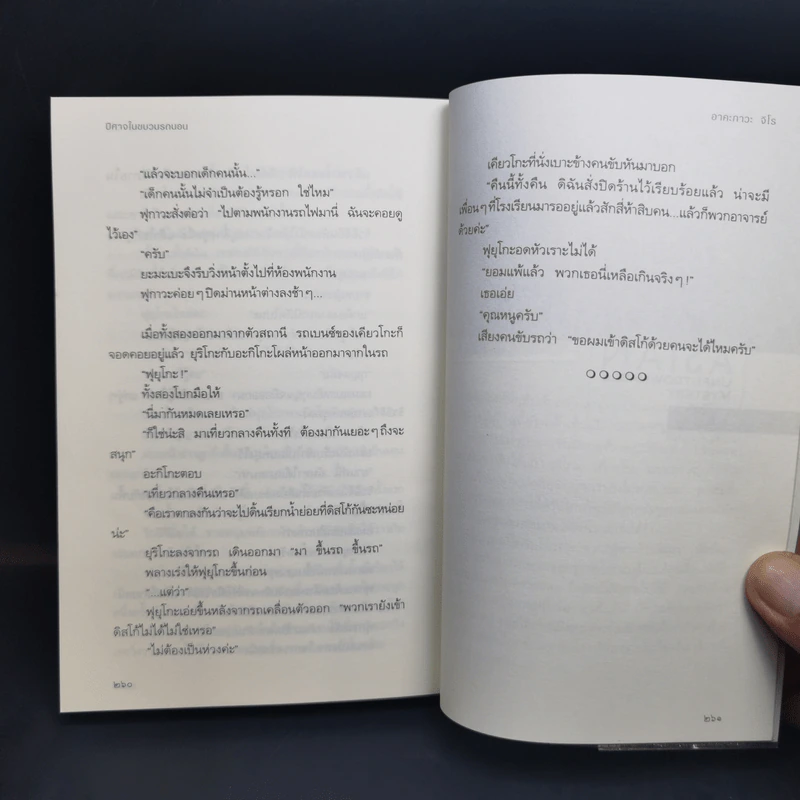 ปีศาจในขบวนรถนอน
"แล้วจะบอกเด็กคนนั้น..."
"เด็กคนนั้นไม่จำเป็นต้องรู้หรอก ใช่ไหม"
ฟุกาวะสั่งต่อว่า "ไปตามพนักงานรถไฟมานี่ ฉันจะคอยดู
ไว้เอง"
"ครับ"
ยะมะเบะจึงรีบวิ่งหน้าตั้งไปที่ห้องพนักงาน
ฟุกาวะค่อยๆปิดม่านหน้าต่างลงช้าๆ...
เมื่อทั้งสองออกมาจากตัวสถานี รถเบนซ์ของเคียวโกะก็
จอดคอยอยู่แล้ว ยุริโกะกับอะกิโกะโผล่หน้าออกมาจากในรถ
"ฟุยุโกะ!"
ทั้งสองโบกมือให้
"นี่มากันหมดเลยเหรอ"
"ก็ใช่น่ะสิ มาเที่ยวกลางคืนทั้งที ต้องมากันเยอะๆถึงจะ
สนุก"
อะกิโกะตอบ
"เที่ยวกลางคืนเหรอ"
"คือเราตกลงกันว่าจะไปดิ้นเรียกน้ำย่อยที่ดิสโก้กันซะหน่อย
น่ะ"
ยุริโกะลงจากรถ เดินออกมา "มา ขึ้นรถ ขึ้นรถ"
พลางเร่งให้ฟุยุโกะขึ้นก่อน
"...แต่ว่า"
ฟุยุโกะเอ่ยขึ้นหลังจากรถเคลื่อนตัวออก "พวกเรายังเข้า
ดิสโก้ไม่ได้ไม่ใช่เหรอ"
"ไม่ต้องเป็นห่วงค่ะ"
๒๖๐
อาคะกาวะ จิโร
เคียวโกะที่นั่งเบาะข้างคนขับหันมาบอก
"คืนนี้ทั้งคืน ดิฉันสั่งปิดร้านไว้เรียบร้อยแล้ว น่าจะมี
เพื่อนๆที่โรงเรียนมารออยู่แล้วสักสี่ห้าสิบคน...แล้วก็พวกอาจารย์
ด้วยค่ะ"
ฟุยุโกะอดหัวเราะไม่ได้
"ยอมแพ้แล้ว พวกเธอนี่เหลือเกินจริงๆ!"
เธอเอ่ย
"คุณหนูครับ"
เสียงคนขับรถว่า "ขอผมเข้าดิสโก้ด้วยคนจะได้ไหมครับ"
๒๖๑